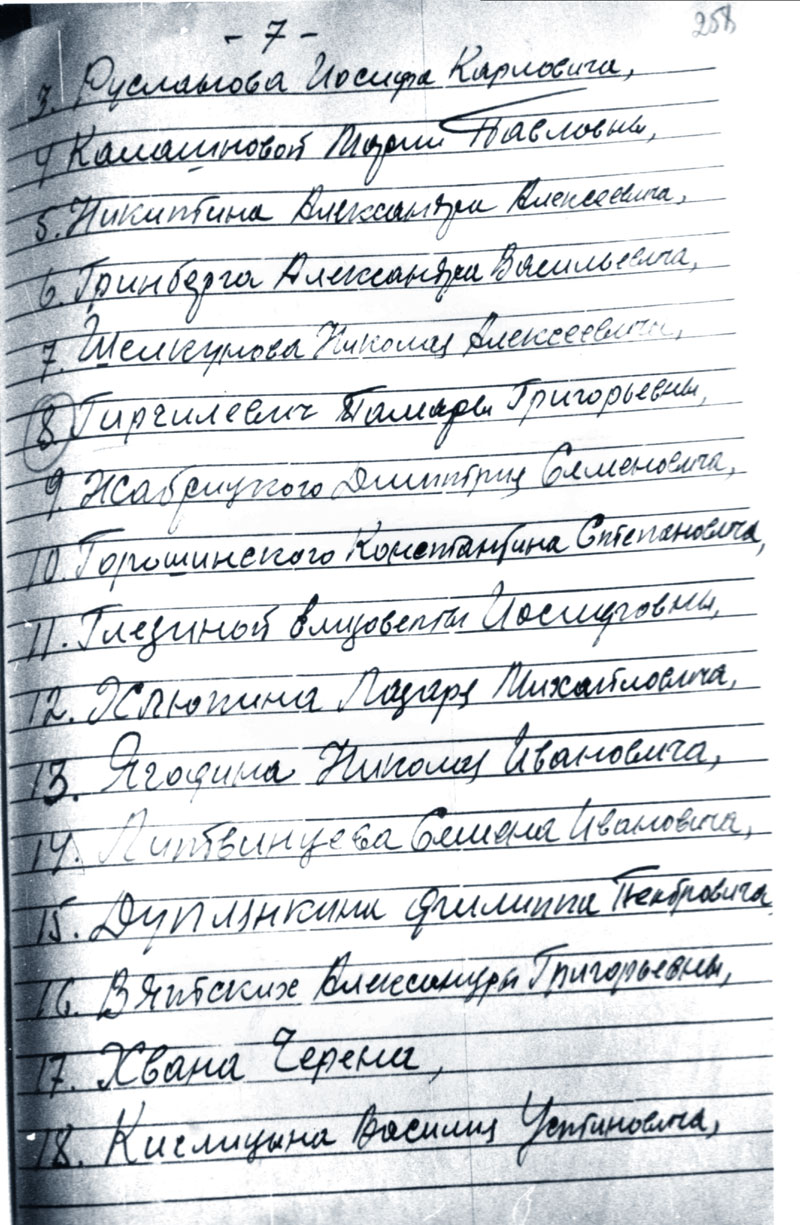 258
- 7 -
3. Русланова Иосифа Карловича,
4 Калашновой Марии Павловны,
5. Никитина Александра Алексеевича,
6. Гринберга Александра Васильевича,
7. Шелкунова Николая Алексеевича,
8 Гиргилевич Тамары Григорьевны,
9. Жабрицкого Дмитрия Семеновича,
10. Горошинского Константина Степановича,
11. Глезиной Елизоветы Иосифовны,
12. Хлюпина Лазаря Михайловича,
13. Ягодина Николая Ивановича,
14. Литвинцева Семена Ивановича,
15. Дуплянкина Филиппа
16. Вятских Александры Григорьевны,
17. Хвана Черена,
18. Кислицына Василия Устиновича,